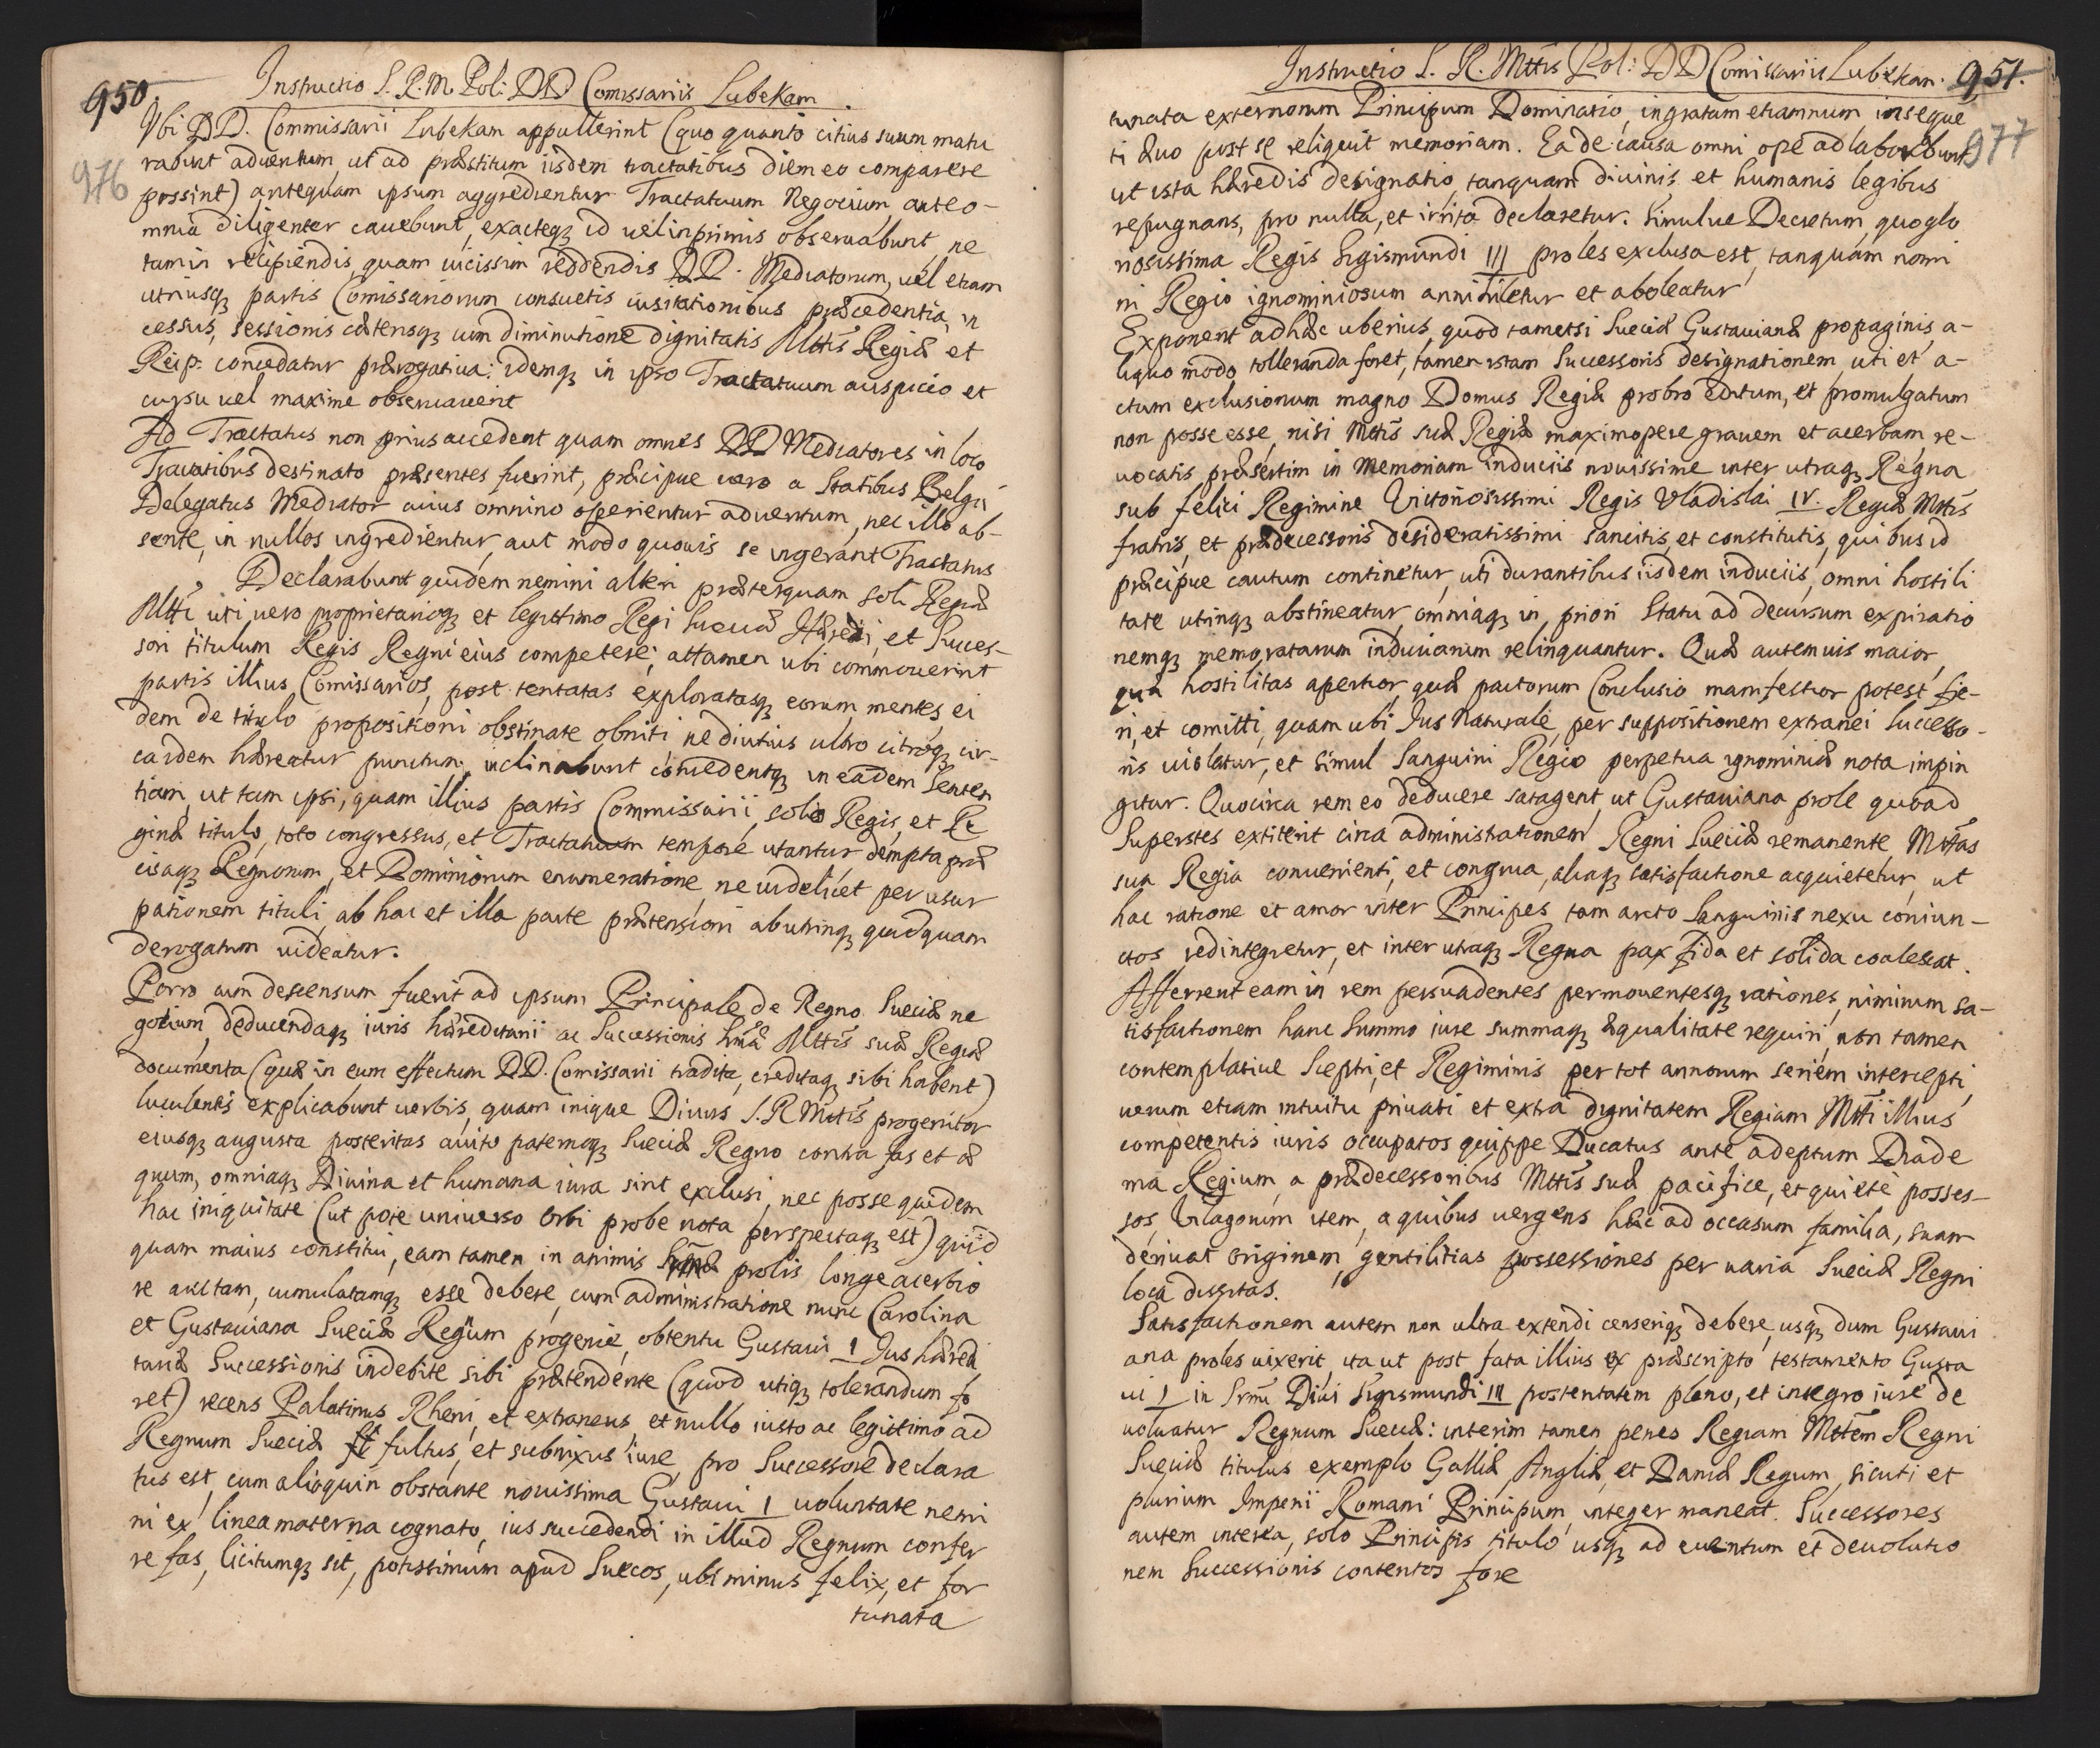 950
Instructio S. R. M. Pol: DD Comissariis Lubekam.
Vbi DD. Commissarii Lubekam appullerint (quo quanto citius suum matu
976
rabunt aduentum, ut ad præstitum iisdem tractatibus diem eo comparere
possint) antequam ipsum aggrediantur Tractatuum Negocium, ante o-
mnia diligenter cauebunt, exacteq3 id uel inprimis obseruabunt, ne
tam in recipiendis, quam uicissim reddendis DD. Mediatorum, uel etiam
utriusq3 partis Comissariorum consuetis uisitationibus præcedentia, in
cessus, sessionis cæteraq3 cum diminutione dignitatis Mttis Regiæ et
Reip. concedatur prærogatiua: idemq3 in ipso Tractatuum auspicio et
cursu uel maxime obseruauerint
Ad Tractatus non prius accedent quam omnes DD Mediatores in loco
Tractatibus destinato præsentes fuerint, præcipue uero a Statibus Belgii
Delegatus Mediator cuius omnino operientur aduentum, nec illo ab-
sente, in nullos ingredientur, aut modo quouis se ingerant Tractatus
Declarabunt quidem nemini alteri præterquam soli Regiæ
Mtti uti uero proprietarioq3 et legitimo Regi Sueciæ Hæredi, et Succes-
sori titulum Regis Regni eius competere; attamen ubi commouerint
partis illius Comissarios, post tentatas exploratasq3 eorum mentes, ei
dem de titulo propositioni obstinate obniti, ne diutius ultro citroq3 cir-
ca idem hæreatur punctum, inclinabunt concedentq3 in eadem senten
tiam, ut tam ipsi, quam illius partis Commissarii, solo Regis, et Re
ginæ titulo, toto congressus, et Tractatuum tempore utantur dempta præ
cisaq3 Regnorum, et Dominiorum enumeratione, ne uidelicet per usur
pationem tituli, ab hac et illa parte prætensioni ab utrinq3 quidquam
derogatum uideatur.
Porro cum descensum fuerit ad ipsum Principale de Regno Sueciæ ne
gotium, deducendaq3 iuris hæreditarii ac Successionis Srmæ Mttis suæ Regiæ
documenta (quæ in eum effectum DD. Comissarii tradita, creditaq3 sibi habent)
luculentis explicabunt uerbis, quam inique Diuus S. R Mttis progenitor
eiusq3 augusta posteritas auito paternoq3 Sueciæ Regno contra fas et æ
quum, omniaq3 Diuina et humana iura sint exclusi, nec posse quidem
hac iniquitate (ut pote uniuerso Orbi probe nota perspectaq3 est) quid
quam maius constitui, eam tamen in animis Srmæ prolis longe acerbio
re auctam, cumulatamq3 esse debere, cum administratione nunc Carolina
et Gustauiana Sueciæ Regum progenie, obtentu Gustaui I Jus hæredi
tariæ Successionis indebite sibi prætendente (quod utiq3 tolerandum fo
ret) recens Palatinus Rheni, et extraneus, et nullo iusto ac legitimo ad
Regnum Sueciæ fultus, et subnixus iure, pro Successore declara
tus est, cum alioquin obstante nouissima Gustaui I uoluntate nemi
ni ex linea materna cognato, ius succedendi in illud Regnum confer
re fas, licitumq3 sit, potissimum apud Suecos, ubi minus felix, et for
tunata
Instructio S. R. Mttis Pol: DD Comissariis Lubekam. 951.
tunata externorum Principum Dominatio, ingratam etiamnum inseque
ti æuo post se reliquit memoriam. Ea de causa omni ope adlaborabunt
977
ut ista hæredis designatio, tanquam diuinis et humanis legibus
repugnans, pro nulla, et irrita declaretur. Simulue Decretum, quo glo
riosissima Regis Sigismundi III proles exclusa est, tanquam nomi
ni Regio ignominiosum annihiletur et aboleatur
Exponent ad hæc uberius, quod tametsi Sueciæ Gustauianæ propaginis, a-
liquo modo tolleranda foret, tamen istam Successoris designationem, uti et a-
ctum exclusionum magno Domus Regiæ probro editum, et promulgatum
non posse esse, nisi Mttis suæ Regiæ maximopere grauem et acerbam, re-
uocatis præsertim in memoriam induciis nouissime inter utraq3 Regna
sub felici Regimine Victoriosissimi Regis Vladislai IV. Regiæ Mttis
fratris, et prædecessoris desideratissimi sancitis, et constitutis, quibus id
præcipue cautum continetur, uti durantibus iisdem induciis, omni hostili
tate utrinq3 abstineatur, omniaq3 in priori Statu ad decursum expiratio
nemq3 memoratarum induciarum relinquantur. Quæ autem uis maior,
quæ hostilitas apertior, quæ pactorum Conclusio manifestior potest fie-
ri, et comitti, quam ubi Jus Naturale, per suppositionem extranei Successo-
ris uiolatur, et simul Sanguini Regio perpetua ignominiæ nota impin
gitur. Quocirca rem eo deducere satagent, ut Gustauiana prole quoad
Superstes extiterit circa administrationem Regni Sueciæ remanente, Mttas
sua Regia conuenienti, et congrua, aliaq3 satisfactione acquietetur, ut
hac ratione et amor inter Principes tam arcto Sanguinis nexu coniun-
ctos redintegretur, et inter utraq3 Regna pax fida et solida coalescat.
Afferrent eam in rem persuadentes permouentesq3 rationes, nimirum sa-
tisfactionem hanc Summo iure summaq3 æqualitate requiri, non tamen
contemplatiue Sceptri, et Regiminis per tot annorum seriem intercepti,
uerum etiam intuitu priuati et extra dignitatem Regiam Mtti illius
competentis iuris occupatos quippe Ducatus ante adeptum Diade
ma Regium, a prædecessoribus Mttis suæ pacifice, et quiete posses-
sos, Vilagonum item, a quibus uergens hæc ad occasum familia, suam
deriuat originem, gentilitias possessiones per uaria Sueciæ Regni
loca dissitas.
Satisfactionem autem non ultra extendi censeriq3 debere, usq3 dum Gustaui
ana proles uixerit, ita ut post fata illius ex præscripto testamento Gusta
ui I in Srmi Diui Sigismundi III posteritatem pleno, et integro iure de
uoluatur Regnum Sueciæ: interim tamen penes Regiam Mttem Regni
Sueciæ titulus exemplo Galliæ, Angliæ, et Daniæ Regum, sicuti et
plurium Imperii Romani Principum, integer maneat. Successores
autem interea, solo Principis titulo usq3 ad euentum et deuolutio
nem Successionis contentos fore